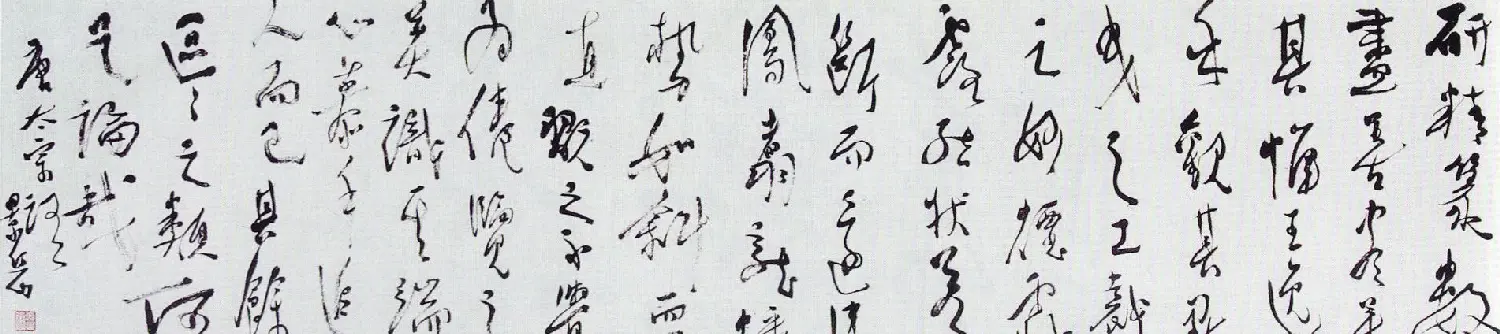 研精篆
盡善尽美
其惟王逸
乎觀其点
曳之工裁
之妙煙霏
露結狀若
斷而還連
鳳翥龍蟠
勢如斜而
直翫之不覺
為倦覽之
莫識其端
心慕手追
人而已其餘
區々之類何
足論哉
唐太宗